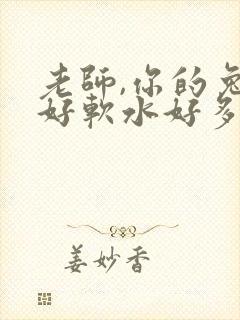 老師,你的兔
好軟水好多
姜妙香